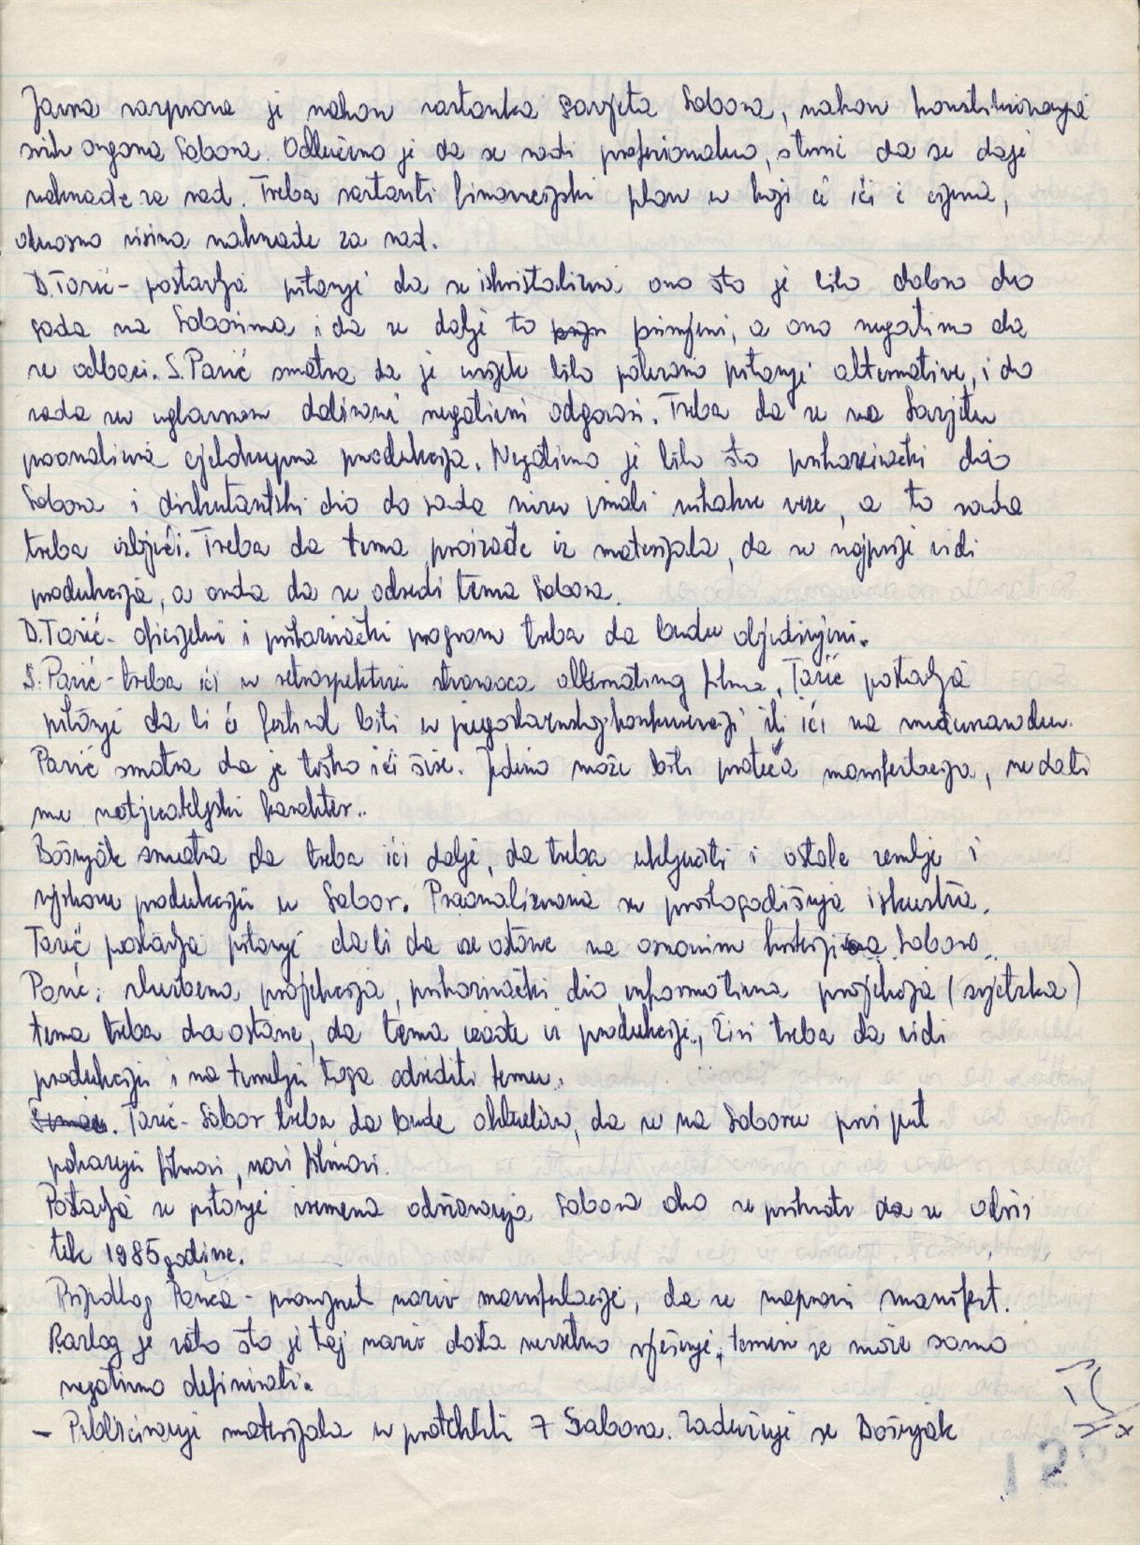 Javna rasprava je nakon sastanka Savjeta Sabora, nakon konstituiranja
svih organa Sabora. Odlučeno je da se radi profesionalno, stime da se daje
naknade za rad. Treba sastaviti financijski plan u koji će ići i cijena,
odnosno visina naknade za rad.
D. Tasić - postavlja pitanje da se iskristalizira ono što je bilo dobro do
sada na Saborima i da se dalje to primjeni, a ono negativno da
se odbaci. S. Pavić smatra da je uvijek bilo pitanje alternative, i do
sada su uglavnom dobivani negativni odgovori. Treba da se na Savjetu
proanalizira cjelokupna produkcija. Negativno je bilo što prikazivački dio
Sabora i diskutantski dio do sada nisu imali nikakve veze, a to sada
treba izbjeći. Treba da tema proizađe iz materijala, da se najprije vidi
produkcija, a onda da se odredi tema Sabora.
D. Tasić - oficijelni i prikazivački program treba da budu objedinjeni.
S. Pavić - treba ići u retrospektivu stvaraoca alternativnog filma, Tasić postavlja
pitanje da li će festival biti u jugoslavenskoj konkurenciji ili ići na međunarodnu.
Pavić smatra da je teško ići šire. Jedino može biti prateća manifestacija, ne dati
mu natjecateljski karakter..
Bošnjak smatra da treba ići dalje, da treba uključiti i ostale zemlje i
njihovu produkciju u Sabor. Proanalizirana su prošlogodišnja iskustva.
Tasić postavlja pitanje da li da se ostane na osnovnim Sabora..
Pavić: službena projekcija, prikazivački dio informativna projekcija (svjetska)
tema treba da ostane, da tema izađe iz produkcije, žiri treba da vidi
produkciju i na temelju toga odrediti temu.
Tasić - Sabor treba da bude, da se na Saboru prvi put
pokazuju filmovi, novi filmovi.
Postavlja se pitanje vremena održavanja Sabora ako se prihvati da se održi
tek 1985 godine.
Prijedlog Pavića - promijeniti naziv manifestacije, da se napravi manifest.
Razlog je zato što je taj naziv dosta nesretno rješenje, termin se može samo
negativno definirati.
- Publiciranje materijala u proteklih 7 Sabora. Zadužuje se Bošnjak